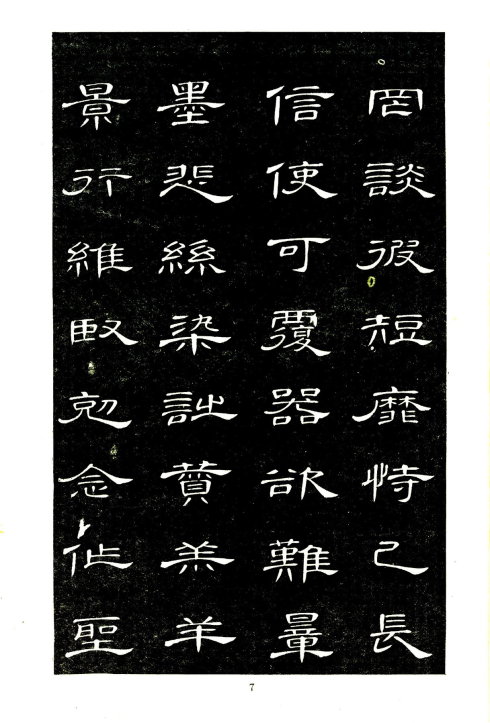 罔談彼短靡恃己長
信使可覆器欲難量
墨悲絲染詩賛羔羊
景行維賢剋念作聖
7